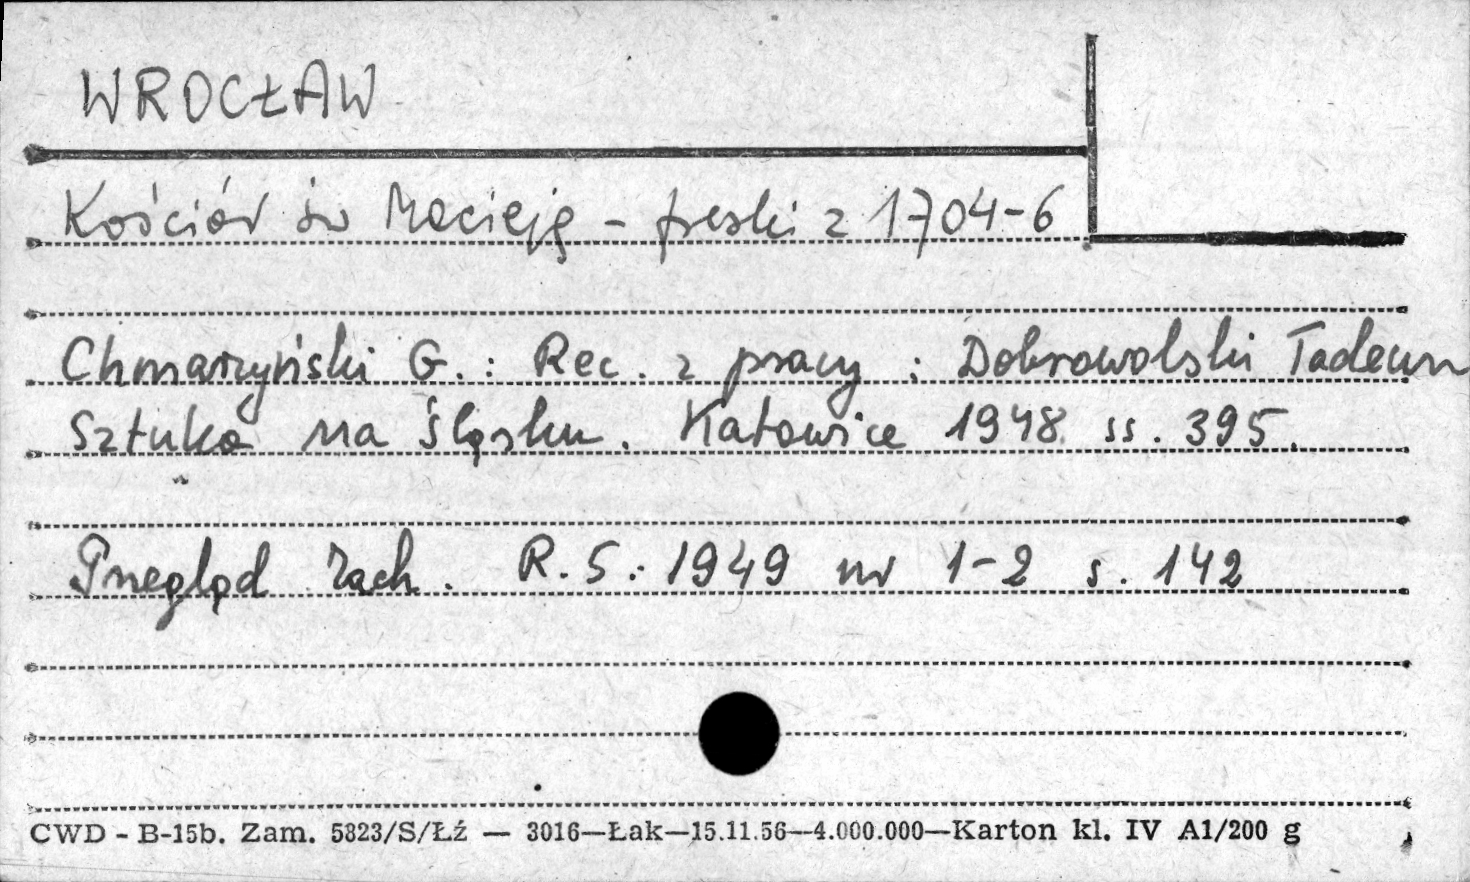 WROCŁAW
Kościół św Macieja - freski z 1704-6
Chmarzyński G. : Rec. z pracy : Dobrowolski Tadeusz
Sztuka na Śląsku. Katowice 1948 ss. 395.
Przegląd Zach. R. 5: 1949 nr 1-2 s. 142
CWD - B-15b. Zam. 5823/S/Łź — 3016—Łak—15.11.56—4.000.000—Karton kl. IV A1/200 g